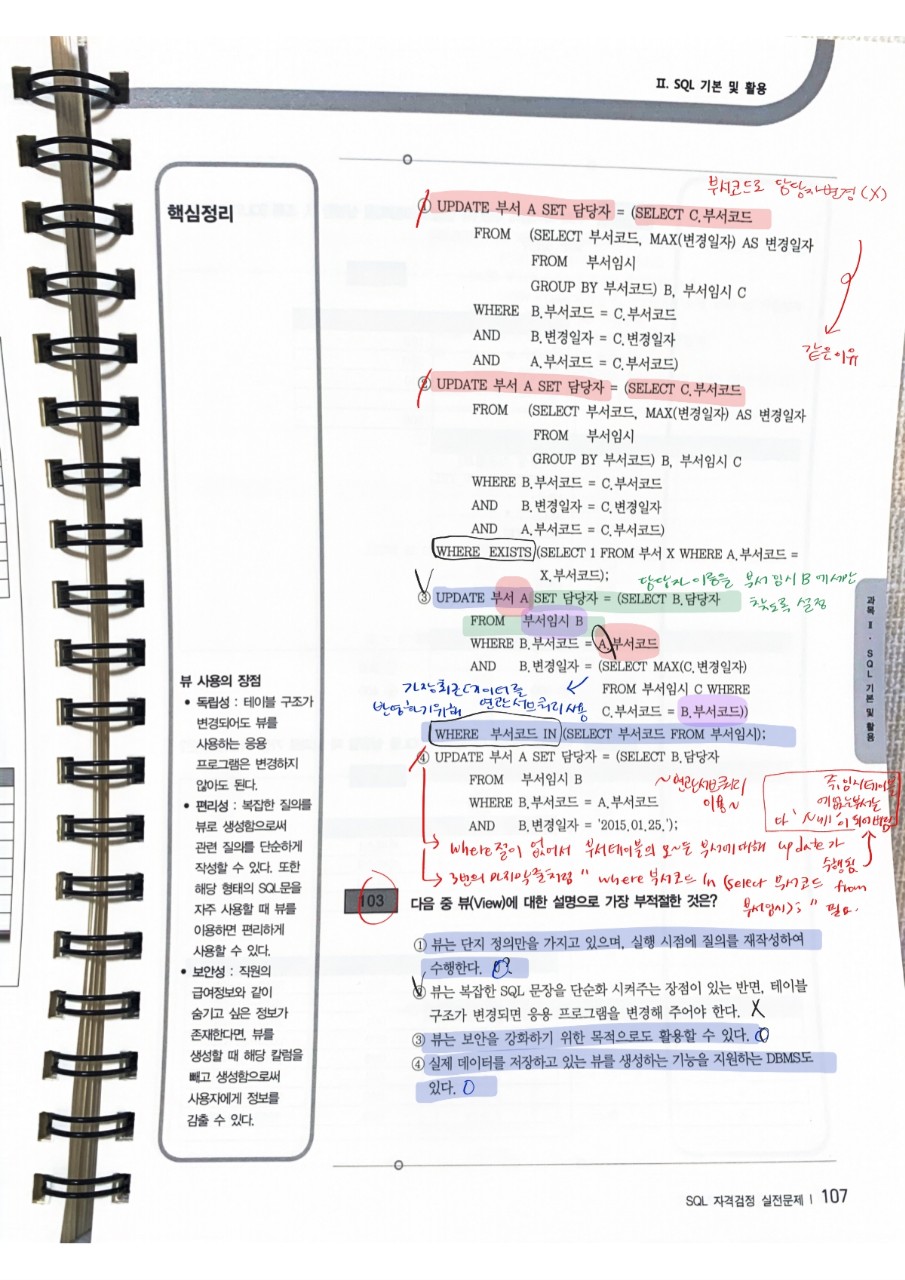 II. SQL 기본 및 활용
핵심정리
부서코드로 담당자변경 (X)
① UPDATE 부서 A SET 담당자 = (SELECT C.부서코드
FROM (SELECT 부서코드, MAX(변경일자) AS 변경일자
FROM 부서임시
GROUP BY 부서코드) B, 부서임시 C
WHERE B.부서코드 = C.부서코드
AND B.변경일자 = C.변경일자
AND A.부서코드 = C.부서코드)
같은이유
② UPDATE 부서 A SET 담당자 = (SELECT C.부서코드
FROM (SELECT 부서코드, MAX(변경일자) AS 변경일자
FROM 부서임시
GROUP BY 부서코드) B, 부서임시 C
WHERE B.부서코드 = C.부서코드
AND B.변경일자 = C.변경일자
AND A.부서코드 = C.부서코드)
WHERE EXISTS (SELECT 1 FROM 부서 X WHERE A.부서코드 =
X.부서코드);
담당자 이름을 부서임시 B 에서만
찾도록 설정
③ UPDATE 부서 A SET 담당자 = (SELECT B.담당자
FROM 부서임시 B
WHERE B.부서코드 = A.부서코드
AND B.변경일자 = (SELECT MAX(C.변경일자)
FROM 부서임시 C WHERE
C.부서코드 = B.부서코드))
가장최근데이터를
반영하기위해 연관서브쿼리사용
WHERE 부서코드 IN (SELECT 부서코드 FROM 부서임시);
④ UPDATE 부서 A SET 담당자 = (SELECT B.담당자
FROM 부서임시 B
WHERE B.부서코드 = A.부서코드
AND B.변경일자 = '2015.01.25.');
~연관서브쿼리
이용~
즉, 임시테이블
에 없는 부서는
다 'Null'이 되어버림
where절이 없어서 부서테이블의 모~든 부서에대해 update가
수행됨
3번의 마지막줄처럼 " where 부서코드 in (select 부서코드 from
부서임시); " 필요.
뷰 사용의 장점
• 독립성 : 테이블 구조가
변경되어도 뷰를
사용하는 응용
프로그램은 변경하지
않아도 된다.
• 편리성 : 복잡한 질의를
뷰로 생성함으로써
관련 질의를 단순하게
작성할 수 있다. 또한
해당 형태의 SQL문을
자주 사용할 때 뷰를
이용하면 편리하게
사용할 수 있다.
• 보안성 : 직원의
급여정보와 같이
숨기고 싶은 정보가
존재한다면, 뷰를
생성할 때 해당 칼럼을
빼고 생성함으로써
사용자에게 정보를
감출 수 있다.
103 다음 중 뷰(View)에 대한 설명으로 가장 부적절한 것은?
① 뷰는 단지 정의만을 가지고 있으며, 실행 시점에 질의를 재작성하여
수행한다.
② 뷰는 복잡한 SQL 문장을 단순화 시켜주는 장점이 있는 반면, 테이블
구조가 변경되면 응용 프로그램을 변경해 주어야 한다. X
③ 뷰는 보안을 강화하기 위한 목적으로도 활용할 수 있다. O
④ 실제 데이터를 저장하고 있는 뷰를 생성하는 기능을 지원하는 DBMS도
있다. O
과목 II · SQL 기본 및 활용
SQL 자격검정 실전문제 | 107